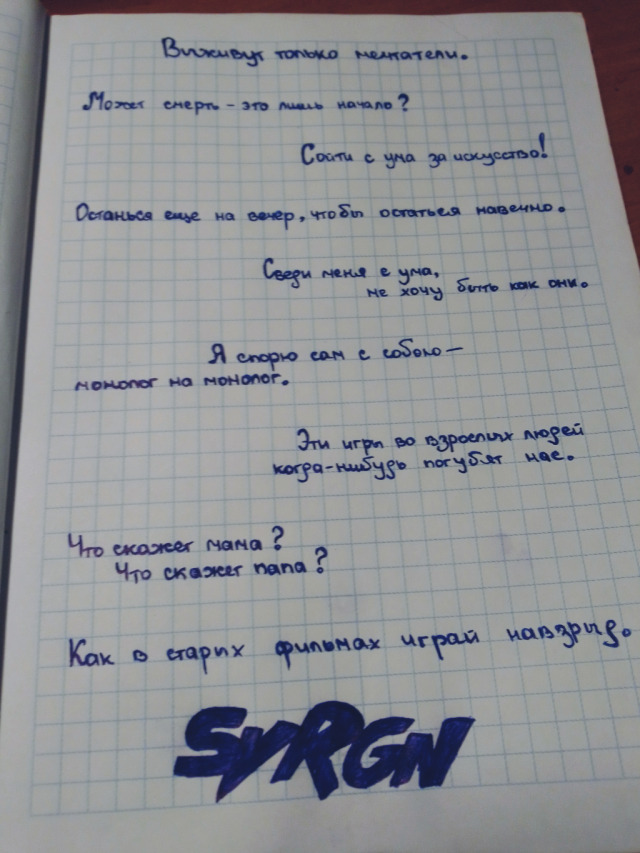 Выживут только мечтатели.
Может смерть - это лишь начало?
Сойти с ума за искусство!
Останься ещё на вечер, чтобы остаться навечно.
Сведи меня с ума,
не хочу быть как они.
Я спорю сам с собою —
монолог на монолог.
Эти игры во взрослых людей
когда-нибудь погубят нас.
Что скажет мама?
Что скажет папа?
Как в старих фильмах играй навзрыд.
SVRGN